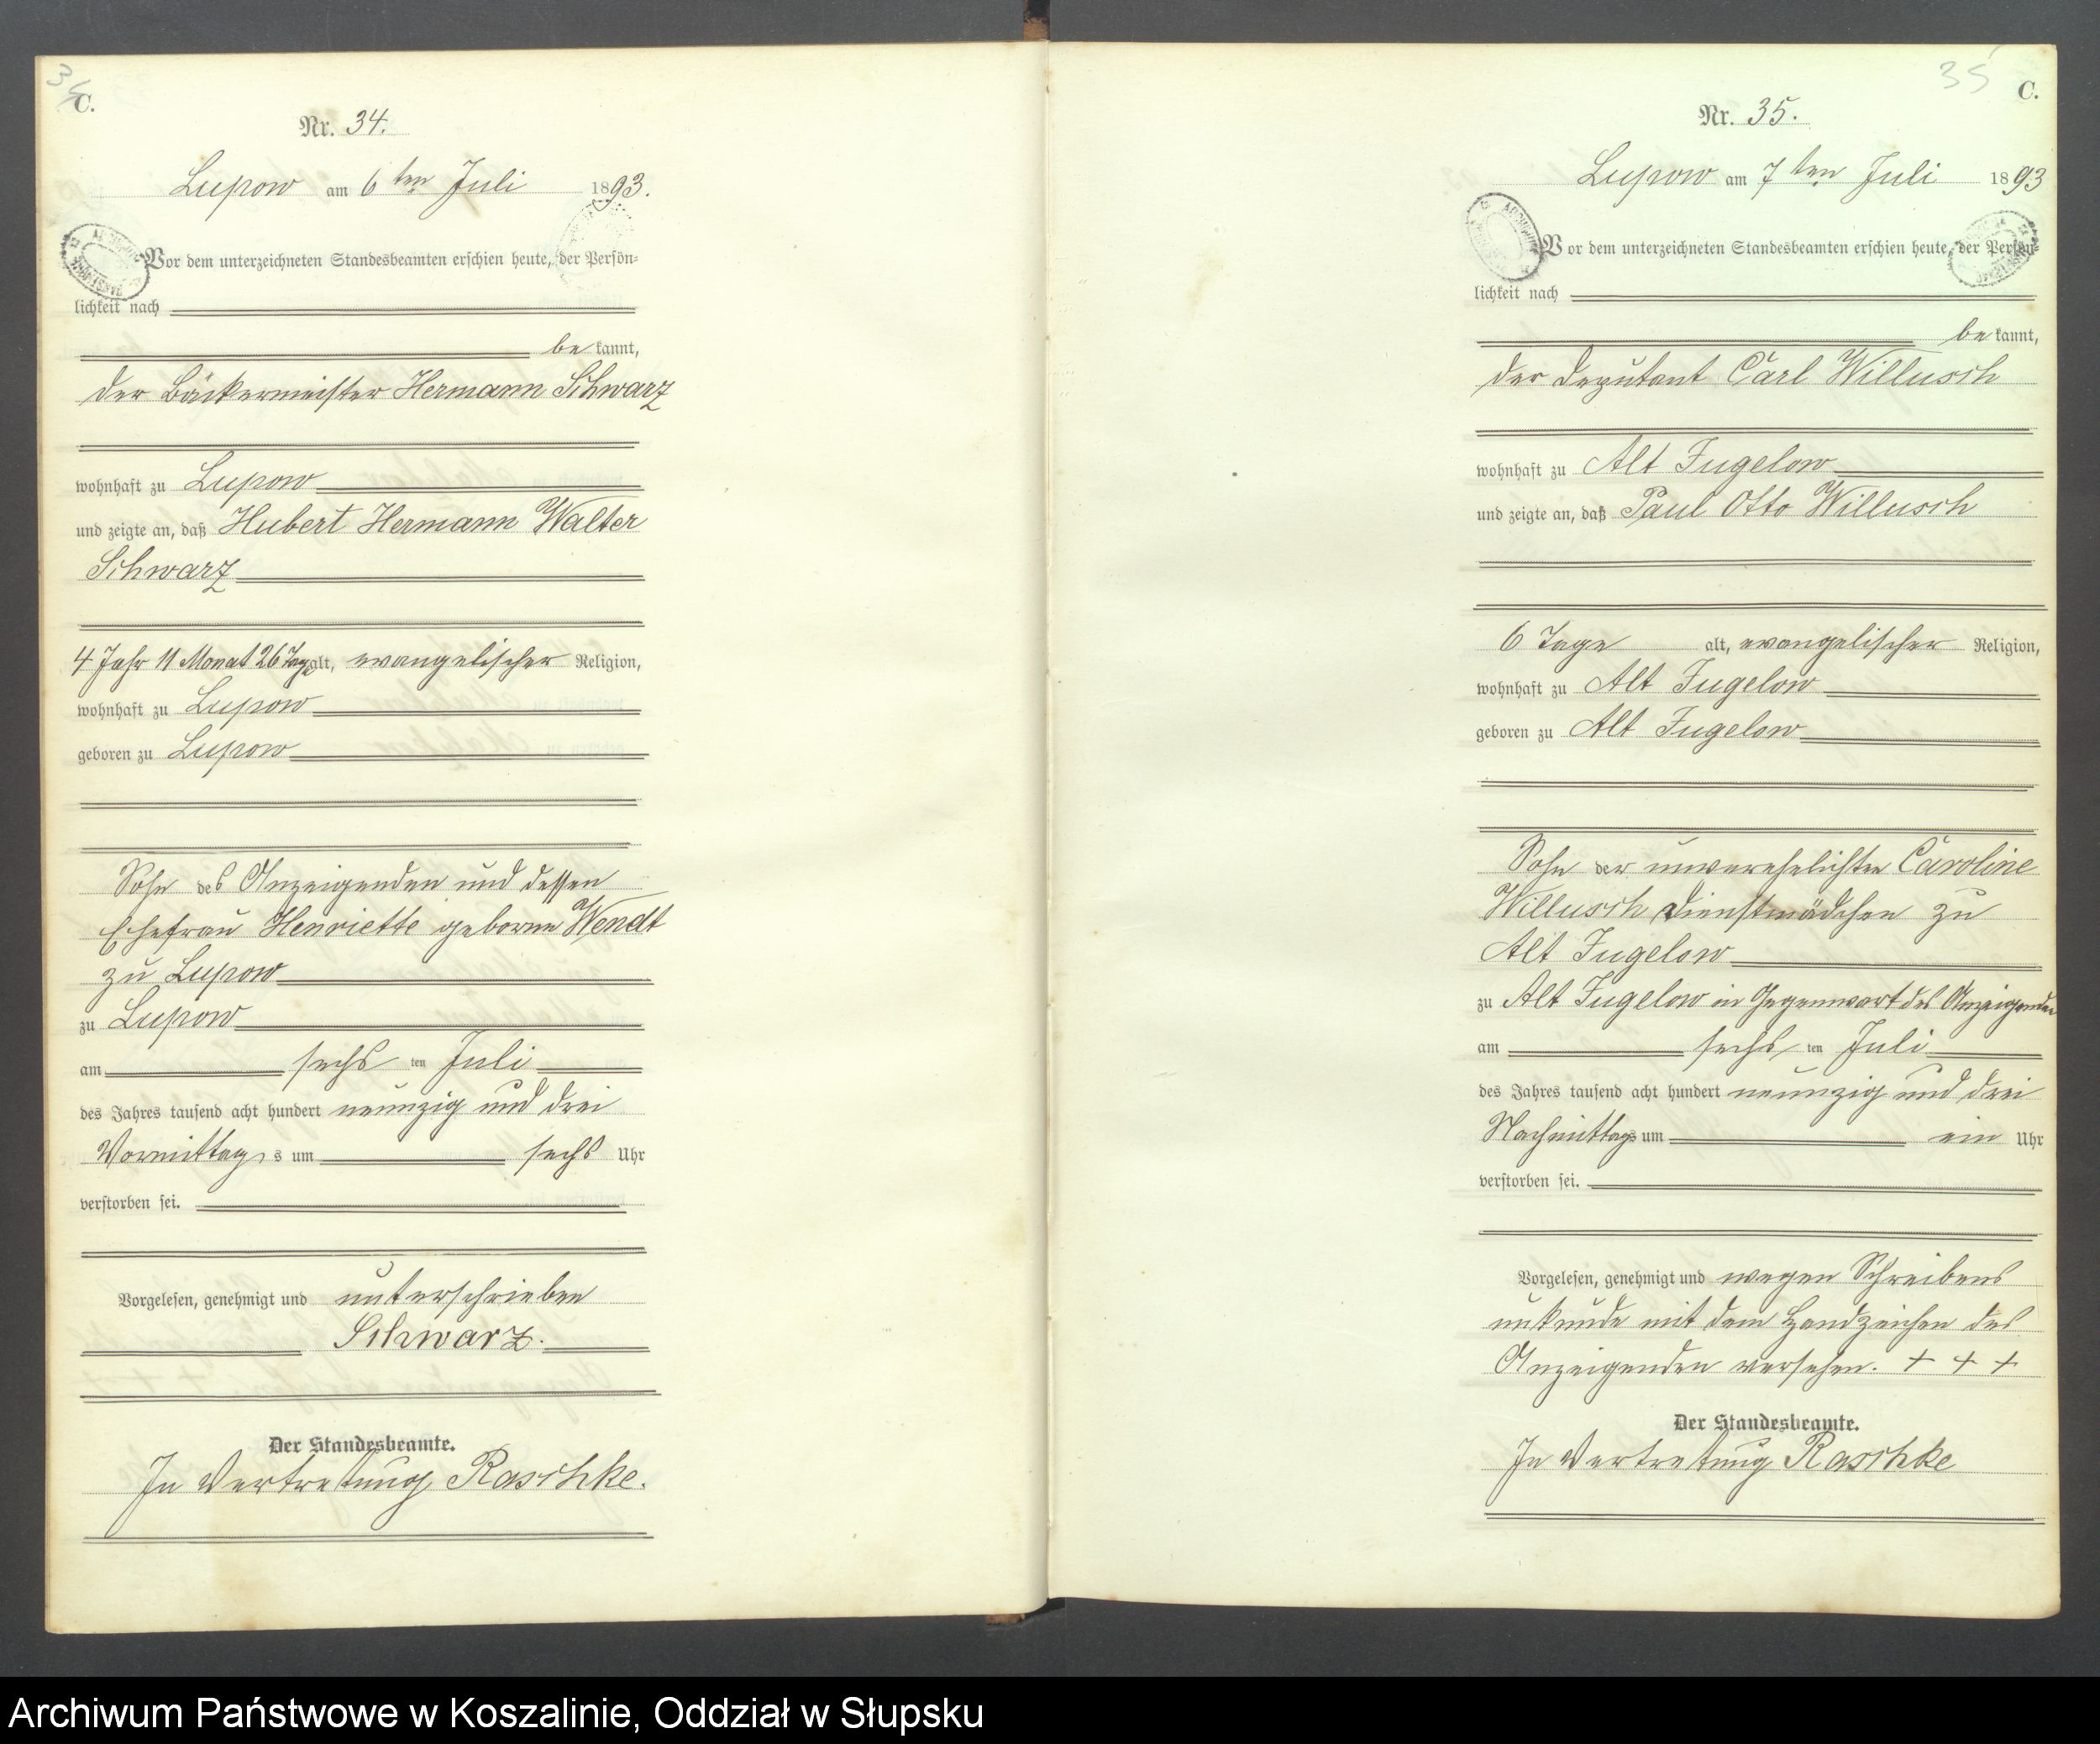 34
C.
Nr. 34.
Lupow am 6 ten Juli 1893.
Vor dem unterzeichneten Standesbeamten erschien heute, der Persön-
lichkeit nach
be kannt,
der Bäckermeister Hermann Schwarz
wohnhaft zu Lupow
und zeigte an, daß Hubert Hermann Walter
Schwarz
4 Jahr 11 Monat 26 Tage alt, evangelischer Religion,
wohnhaft zu Lupow
geboren zu Lupow
Sohn des Anzeigenden und dessen
Ehefrau Henriette geborne Wendt
zu Lupow
zu Lupow
am sechs ten Juli
des Jahres tausend acht hundert neunzig und drei
Vormittags um sechs Uhr
verstorben sei.
Vorgelesen, genehmigt und unterschrieben
Schwarz.
Der Standesbeamte.
In Vertretung Raschke.
35
C.
Nr. 35.
Lupow am 7 ten Juli 1893
Vor dem unterzeichneten Standesbeamten erschien heute, der Persön-
lichkeit nach
be kannt,
der Deputant Carl Willusch
wohnhaft zu Alt Jugelow
und zeigte an, daß Paul Otto Willusch
6 Tage alt, evangelischer Religion,
wohnhaft zu Alt Jugelow
geboren zu Alt Jugelow
Sohn der unverehelichten Caroline
Willusch Dienstmädchen zu
Alt Jugelow
zu Alt Jugelow in Gegenwart des Anzeigenden
am sechs ten Juli
des Jahres tausend acht hundert neunzig und drei
Nachmittags um ein Uhr
verstorben sei.
Vorgelesen, genehmigt und wegen Schreibens
unkunde mit dem Handzeichen des
Anzeigenden versehen. + + +
Der Standesbeamte.
In Vertretung Raschke
Archiwum Państwowe w Koszalinie, Oddział w Słupsku